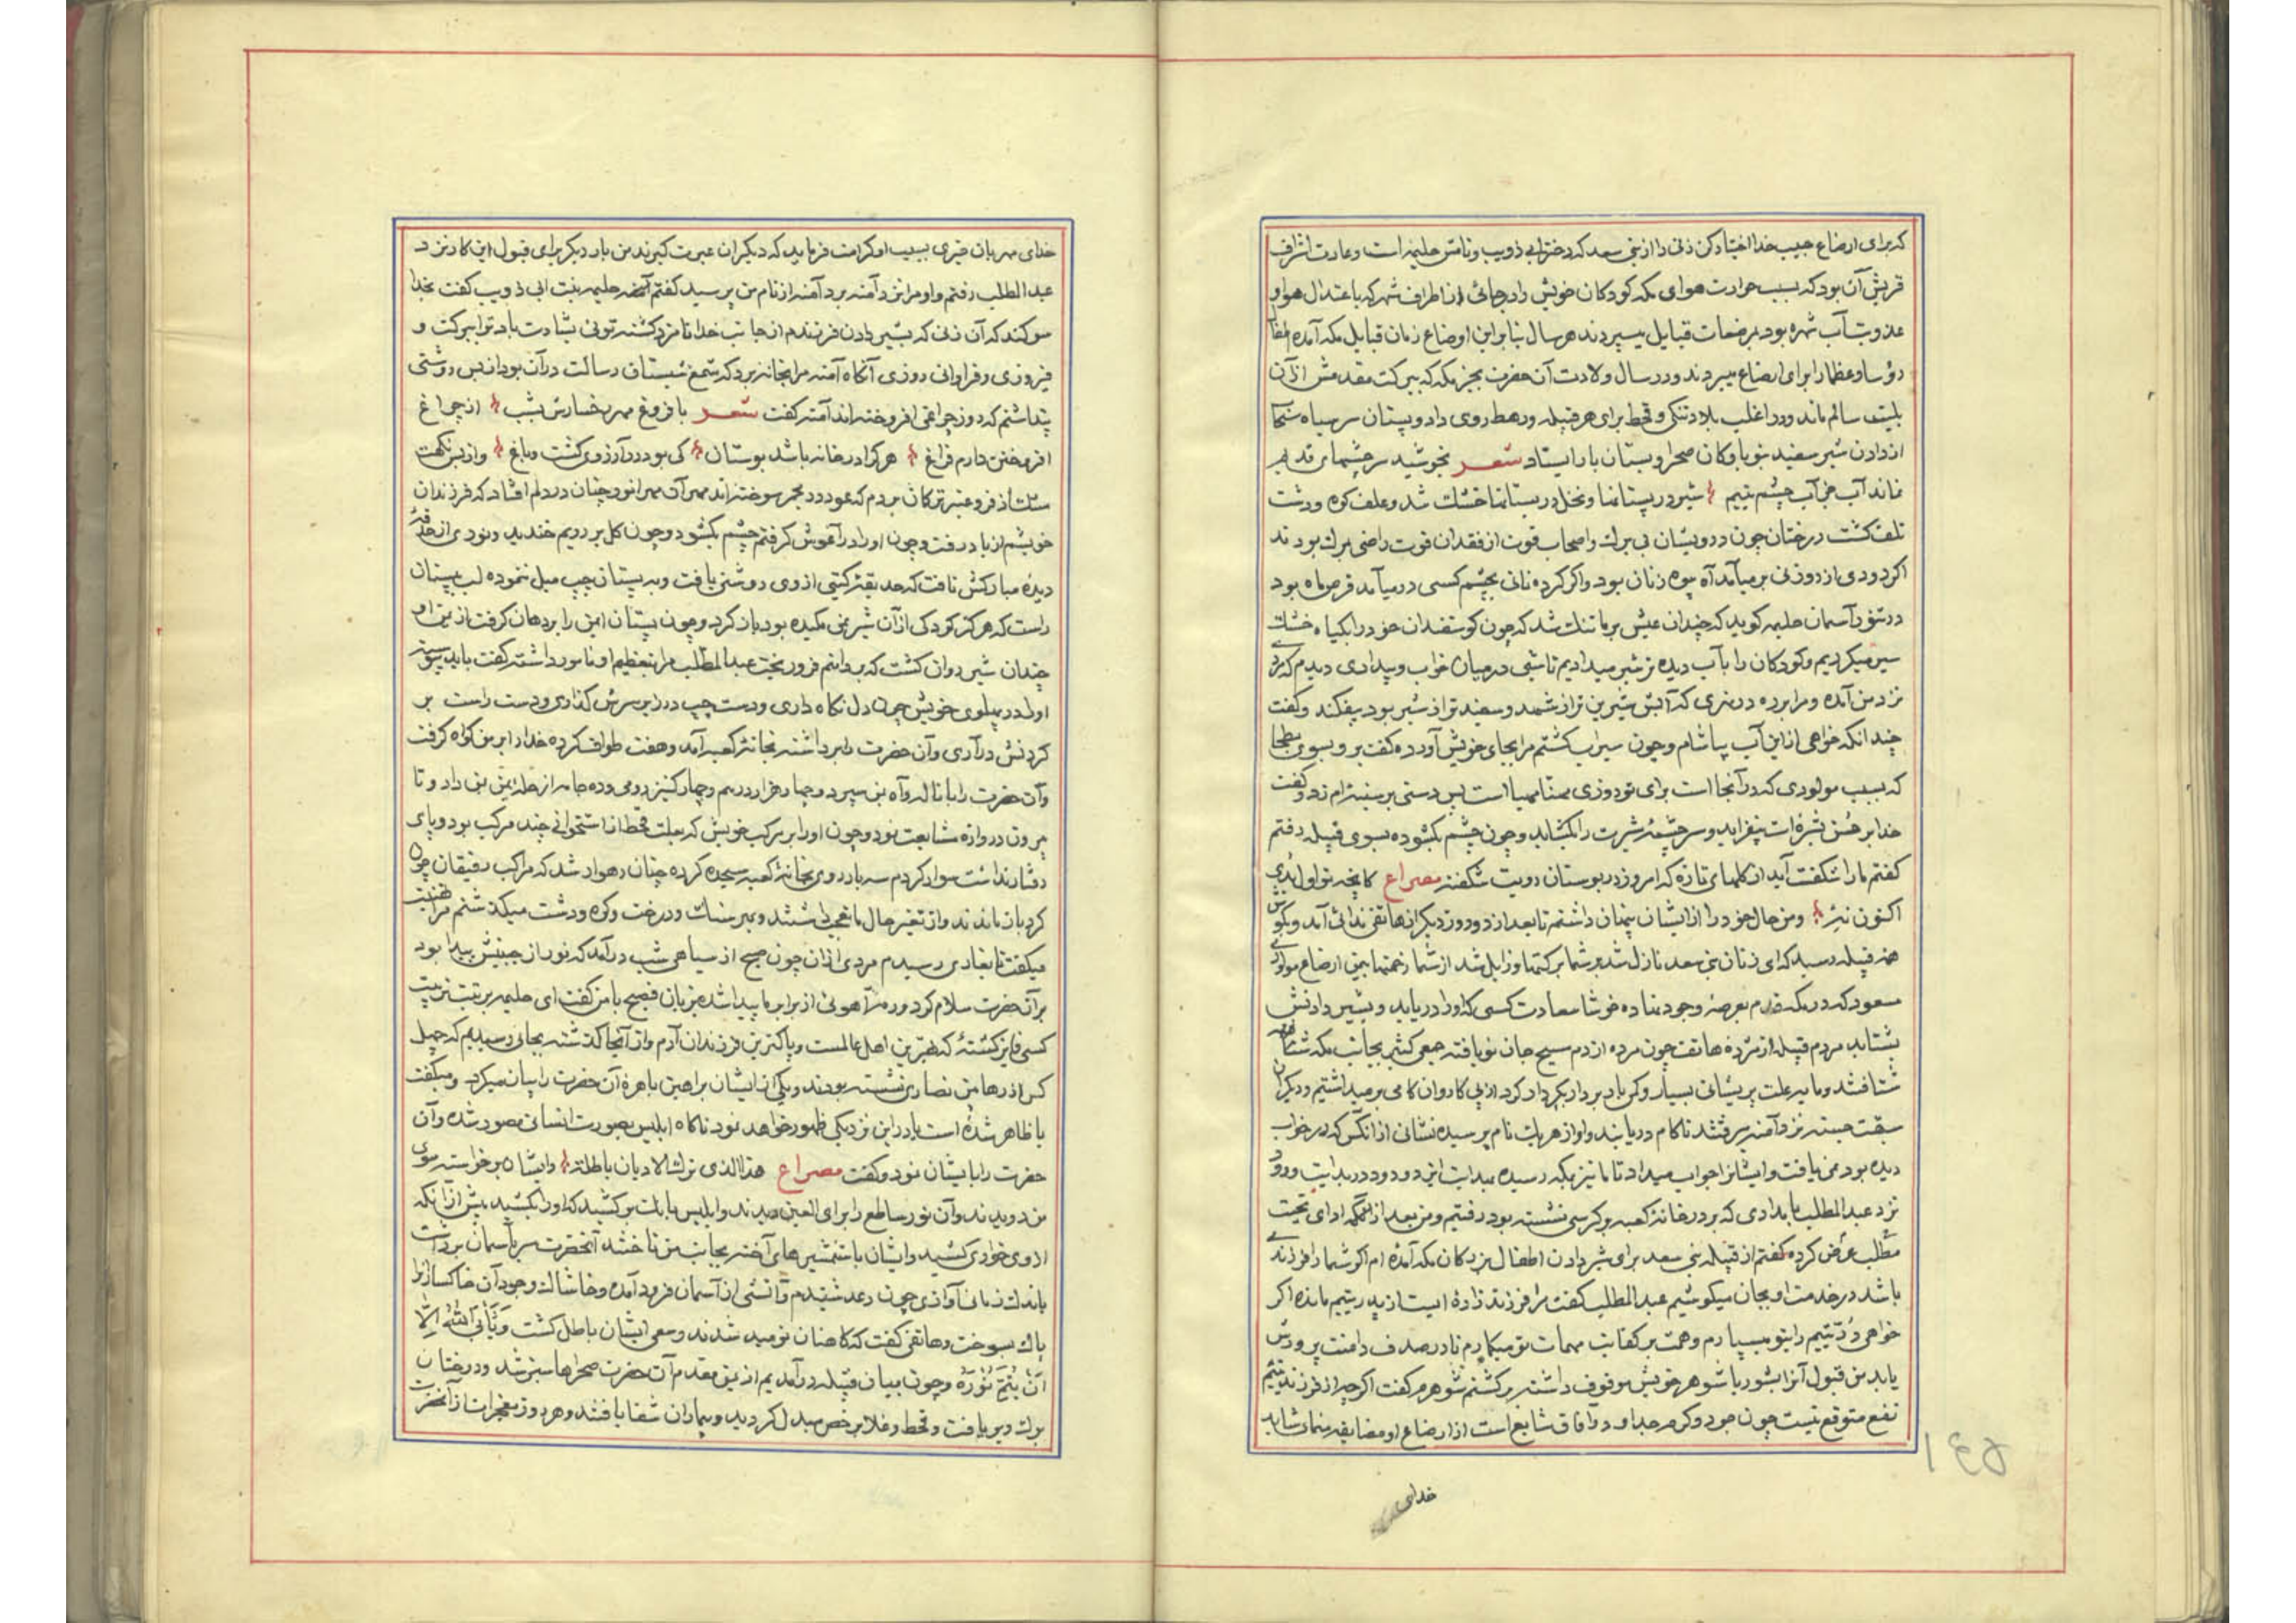 که برای ارضاع حبیب خدا اختیار کن زنی را از بنی سعد که دختر ابی ذویب و نامش حلیمه است و عادت اشراف
قریش آن بود که بسبب حرارت هوای مکه کودکان خویش را در جائی از اطراف شهر که باعتدال هوا و
عذوبت آب شهره بود بمرضعات قبایل میسپردند هر سال بنا بر این اوضاع زنان قبایل مکه آمده
رؤسا و عظما را برای ارضاع میبردند و در سال ولادت آن حضرت بجز مکه که ببرکت مقدمش از آن
بلیت سالم ماند و در اغلب بلاد تنکی و قحط برای هر قبیله و رهط روی داد و پستان سر سیاه
از دادن شیر سفید بنوباوکان صحرا و بستان باز ایستاد شعر نجوشید سرچشمهای قدیم
نماند آب جز آب چشم یتیم شیر در پستانها و نخل در بستانها خشک شد و علف کوه و دشت
تلف کشت درختان چون درویشان بی برک و اصحاب قوت از فقدان قوت راضی بمرک بودند
اکر دودی از روزنی بر میآمد آه بیوه زنان بود و اکر کرده نانی بچشم کسی در میآمد قرص ماه بود
در تنور آسمان حلیمه کوید که چندان عیش بر ما تنک شد که چون کوسفندان خود را بکیاه خشک
سیر میکردیم و کودکان را بآب دیده نه شیر میدادیم تا شبی در میان خواب و بیداری دیدم که مردی
نزد من آمده و مرا برده در نهری که آبش شیرین تر از شهد و سفید تر از شیر بود بیفکند و کفت
چندانکه خواهی از این آب بیاشام و چون سیراب کشتم مرا بجای خویش آورده کفت برو بسوی بطحا
که بسبب مولودی که در آنجا است برای تو روزی مهنا مهیا است پس دستی بر سینه ام زد و کفت
خدا بر حسن بشره ات بیفزاید و سرچشمه شیرت را بکشاید و چون چشم بکشوده بسوی قبیله رفتم
کفتم ما را شکفت آید از کلهای تازه که امروز در بوستان رویت شکفته مصراع کانچه تو اول بدی
اکنون نئی و من حال خود را از ایشان پنهان داشتم تا بعد از دو روز دیکر از هاتفی ندائی آمد و بکوش
همه قبیله رسید که ای زنان بنی سعد نازل شد بر شما برکتها و زایل شد از شما زحمتها بیمن ارضاع مولودی
مسعود که در مکه قدم بعرصه وجود نهاده خوشا سعادت کسی که او را دریابد و بشیر دادنش
بشتابد مردم قبیله از مژده هاتف چون مرده از دم مسیح جان نو یافته جمعی کثیر بجانب مکه
شتافتند و ما بر علت پریشانی بسیار و کم باد بردار یکبر داد کرد از پی کاروان کامی بر میداشتیم و دیکران
سبقت جسته نزد آمنه میرفتند تا کام دریابند و او از هر یک نام پرسیده نشانی از آنکس که در خواب
دیده بود نمی یافت و ایشانرا جواب میداد تا ما نیز بمکه رسیده بهدایت این دو در بدایت ورود
نزد عبدالمطلب بامدادی که بر در خانه کعبه بر کرسی نشسته بود رفتیم و من بعد از آنکه ادای تحیت
مطلب عرض کرده کفتم از قبیله بنی سعد برای شیر دادن اطفال بزرکان مکه آمده ام اکر شما را فرزندی
باشد در خدمت او بجان میکوشیم عبدالمطلب کفت مرا فرزند زاده ایست از پدر یتیم مانده اکر
خواهی در یتیم را بتو میسپارم و همت بر کفایت مهمات تو میکمارم تا در صدف دامنت پرورش
یابد من قبول آنرا بشور با شوهر خویش موقوف داشته بر کشتم شوهرم کفت اکر چه از فرزند یتیم
نفع متوقع نیست چون جود و کرم جد او در آفاق شایع است از ارضاع او مضایقه منمای شاید
خدای
خدای مهربان خیری بسبب او کرامت فرماید که دیکران عبرت کیرند من بار دیکر برای قبول این کار نزد
عبدالمطلب رفتم و او مرا نزد آمنه برد آمنه از نام من پرسید کفتم حلیمه بنت ابی ذویب کفت بخدا
سوکند که آن زنی که بشیر دادن فرزندم از جانب خدا نامزد کشته توئی بشارت باد ترا ببرکت و
فیروزی و فراوانی روزی آنکاه آمنه مرا بخانه برد که شمع شبستان رسالت در آن بود از بس روشنی
پنداشتم که روز چراغی افروخته اند آمنه کفت شعر با فروغ مهر رخسارش بشب از چراغ
افروختن دارم فراغ هر کرا در خانه باشد بوستان کی بود در آرزوی کشت و باغ و از بس نکهت
مشک اذفر و عنبر تر کمان بردم که عود در مجمر سوخته اند مهر آن مهر انور چنان در دلم افتاد که فرزندان
خویشم از یاد رفت و چون او را در آغوش کرفتم چشم بکشود و چون کل بر رویم خندید و نوری از حدقه
دیده مبارکش تافت که حدیقه کیتی از وی روشنی یافت و به پستان چپ میل ننموده لب به پستان
راست که هرکز کودکی از آن شیر نمکیده بود باز کرد و چون پستان ایمن را بر دهان کرفت از یمن او
چندان شیر روان کشت که بر دامنم فرو ریخت عبدالمطلب مرا بتعظیم او مامور داشته کفت باید پیوسته
او را در پهلوی خویش چون دل نکاه داری و دست چپ در زیر سرش کذاری و دست راست بر
کردنش در آری و آن حضرت را برداشته بخانه کعبه آمد و هفت طواف کرده خدا را بر من کواه کرفت
و آن حضرت را با ناله و آه بمن سپرد و چهار هزار درهم و چهار کنیز رومی و ده جامه از حله یمنی بمن داد و تا
بیرون دروازه مشایعت نمود و چون او را بر مرکب خویش که بعلت قحط از استخوانی چند مرکب بود و پای
رفتار نداشت سوار کردم سه بار روی بخانه کعبه سجده کرده چنان رهوار شد که مراکب رفیقان چون
کرد باز ماندند و از تغیر حال ما تعجب داشتند و بهر سنک و درخت و کوه و دشت میکذشتم مرا تهنیت
میکفت تا بغاری رسیدم مردی از آن چون صبح از سیاهی شب در آمد که نور از جبینش پیدا بود
بر آنحضرت سلام کرد و رمه آهوئی از برابر ما پیدا شده بزبان فصیح با من کفت ای حلیمه بتربیت
کسی فایز کشته که بهترین اهل عالمست و پاکترین فرزندان آدم و از آنجا کذشته بجائی رسیدیم که چهل
کس از رهابین نصاری نشسته بودند و یکی از ایشان براهین باهره آن حضرت را بیان میکرد و میکفت
یا ظاهر شده است یا در این نزدیکی ظهور خواهد نمود ناکاه ابلیس بصورت انسانی مصور شده و آن
حضرت را بایشان نمود و کفت مصراع هذا الذی ترک الادیان باطلة و ایشان برخواسته سوی
من دویدند و آن نور ساطع را برای العین دیدند و ابلیس بانک بر کشید که او را بکشید پیش از آنکه
از وی خواری کشید و ایشان با شمشیرهای آخته بجانب من تاختند آنحضرت سر بآسمان برداشت
باندک زمانی آوازی چون رعد شنیدم و آتشی از آسمان فرود آمده و خاشاک وجود آن خاکساران را
پاک بسوخت و هاتفی کفت که کاهنان نومید شدند و سعی ایشان باطل کشت وَیَأبَی اللهُ اِلّا
اَن یُتِمَّ نُورَهُ و چون بمیان قبیله در آمدیم از یمن مقدم آن حضرت صحراها سبز شد و درختان
برک و بر یافت و قحط و غلا برخص مبدل کردید و بیماران شفا یافتند و هر روز معجزات از آنحضرت